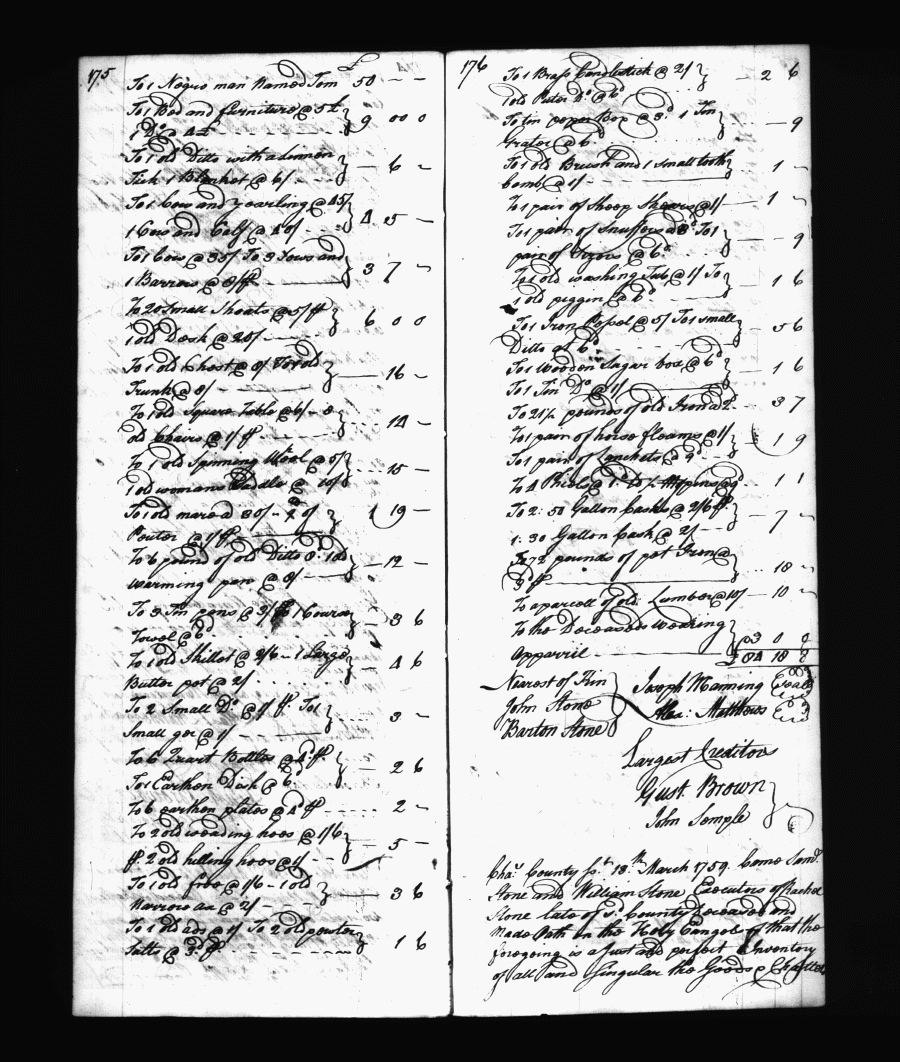 175
£
To 1 Negro man Named Tom 50 - -
To 1 Bed and furniture @ 5£
1 Do @ 4£ 9 00 0
To 1 old Ditto with a Linnen
Tick 1 Blanket @ 6/ - 6 -
To 1 Cow and yearling @ 45/
1 Cow and Calf @ 40/ 4 5 -
To 1 Cow @ 35/ To 3 Sows and
1 Barrow @ 8/ 3 7 -
To 20 Small Shoats @ 5/ pr
1 old Desk @ 20/ 6 0 0
To 1 old Chest @ 8/ To 1 old
Trunk @ 8/ 16 -
To 1 old Square Table @ 6/ - 8
old Chairs @ 1/ pr 14 -
To 1 old Spinning Wheel @ 5/
1 old womans Saddle @ 10/ 15 -
To 1 old mare @ 30/
Pewter @ 1/ pr 1 19 -
To 6 pound of old Ditto
warming pan @ 8/ 12 -
To 3 Tin pans @ 3/ 1 Course
Towel @ 6d 3 6
To 1 old Skillet @ 2/6 - 1 Large
Butter pot @ 2/ 4 6
To 2 Small Do @ 1/ pr To 1
Small @ 1/ 3 -
To 6 Quart Bottles @ 4d pr
To 1 Earthen Dish @ 6d 2 6
To 6 earthen plates @ 4d pr 2 -
To 2 old weading hoes @ 1/6
pr 2 old hilling hoes @ 1/ 5 -
To 1 old froe @ 1/6 - 1 old
Narrow ax @ 2/ 3 6
To 1 old ads @ 1/ To 2 old pewter
Salts @ 3d pr 1 6
176
To 1 Brass Candlestick @ 2/
1 old Puter Do @ 6d 2 6
To tin peper Box @ 3d 1 Tin
Grater @ 6d 9
To 1 old Brush and 1 small tooth
comb @ 1/ 1 -
To 1 pair of Sheep Shears @ 1/ 1 -
To 1 pair of Snuffers @ 3d To 1
pair of @ 6d 9
To 1 old washing Tub @ 1/ To
1 old piggin @ 6d 1 6
To 1 Iron @ 5/ To 1 small
Ditto at 6d 5 6
To 1 Wooden Sugar box @ 6d
To 1 Tin Do @ 1/ 1 6
To 21½ pounds of old Iron @ 2d 3 7
To 1 pair of horse fleams @ 1/
To 1 pair of @ 9d 1 9
To 4 @ 1d 1 1
To 2: 50 Gallon Casks @ 2/6 pr
1: 30 Gallon Cask @ 2/ 7 -
To 72 pounds of pot Iron @
3d pr 18 -
To a parcell of old Lumber @ 10/ 10 -
To the Deceaseds wearing
Apparril 3 0 0
£ 84 18 8
Nearest of Kin
John Stone
Barton Stone
Joseph Manning Seal
Alex: Matthews
Largest Creditors
Gust Brown
John Semple
Chas County Sst 18th March 1759. Came Saml
Stone and William Stone Executors of Rachel
Stone late of sd County Deceased and
Made Oath on the Holy Evangels of that the
foregoing is a Just and perfect Inventory
of all and Singular the Goods & Chattles